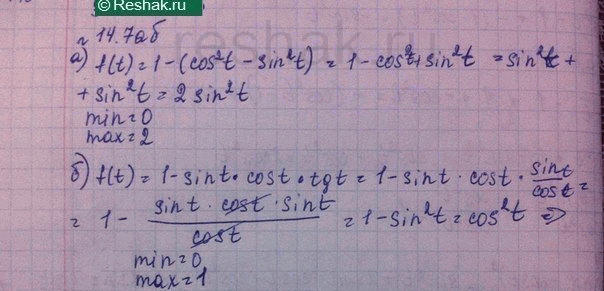 © Reshak.ru
reshak.ru
n 14.7аб
а) f(t) = 1 - (cos²t - sin²t) = 1 - cos²t + sin²t = sin²t +
+ sin²t = 2 sin²t
min = 0
max = 2
б) f(t) = 1 - sint · cost · tgt = 1 - sint · cost · sint/cost =
= 1 - sint · cost · sint/cost = 1 - sin²t = cos²t ⇒
min = 0
max = 1